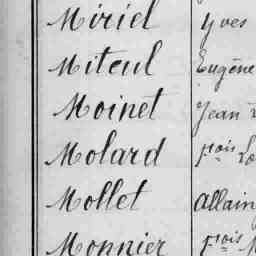 Miriel Yves
Miteul Eugène
Moinet Jean
Molard fçois
Mollet Allain
Monnier fçois